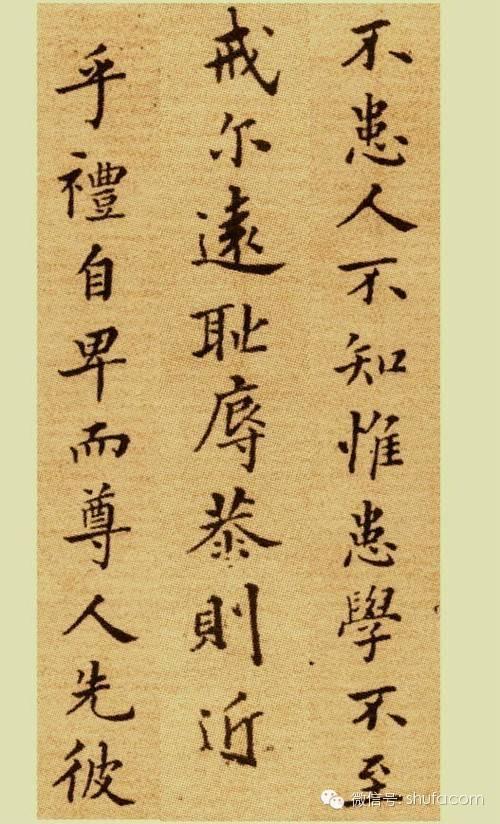 不患人不知惟患學不至
戒尔遠恥辱恭則近
乎禮自卑而尊人先彼
微信号: shufacom